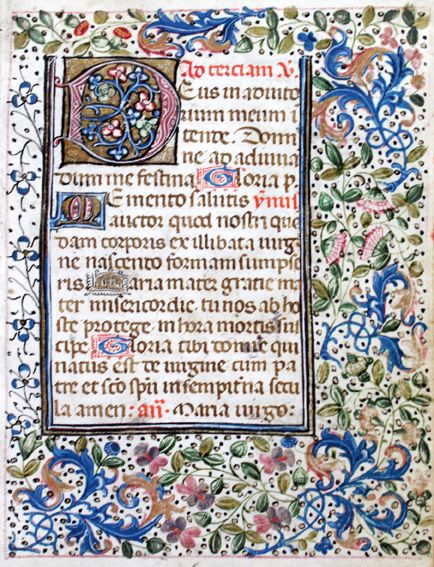 Ad terciam V
Deus in adiuto
rium meum i
tende. Domi
ne ad adiuua
dum me festina Gloria p
Memento salutis ymnis
auctor quod nostri quo
dam corporis ex illibata uirgi
ne nascendo formam sumpse
ris Maria mater gratie ma
ter misericordie tu nos ab ho
ste protege in hora mortis sus
cipe Gloria tibi domine qui
natus est de uirgine cum pa
tre et sco spu in sempitna secu
la amen: an. Maria uirgo: